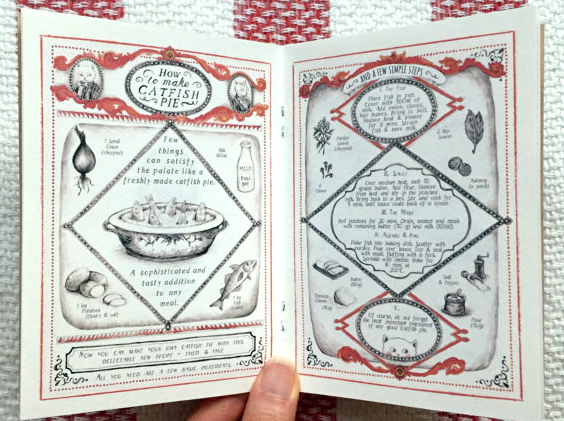 HOW
to make
CATFISH
PIE
1 Small
Onion
(chopped)
Milk
600ml
MILK
Few
things
can satisfy
the palate like a
freshly made catfish pie.
A sophisticated and
tasty addition
to any
meal.
1 kg
Potatoes
NOW YOU CAN MAKE YOUR OWN CATFISH PIE WITH THIS
DELECTABLE NEW RECIPE - TRIED & TRUE
ALL YOU NEED ARE A FEW BASIC INGREDIENTS
AND A FEW SIMPLE STEPS
I. The Fish
Place fish in pan.
Cover with 500ml of
milk. Add onion, cloves,
bay leaves. Bring to boil.
Reduce heat & simmer
for 8 mins. Strain
fish & save milk.
Parsley
(chopped)
2 Bay
Leaves
4
Cloves
Nutmeg
(a pinch)
II. Sauce
Over medium heat, melt 50
grams butter. Add flour. Remove
from heat and stir in the poached
milk. Bring back to boil. Stir and cook for
5 mins, until sauce coats back of a spoon
III. The Mash
Boil potatoes for 20 mins. Drain, season and mash
with remaining butter (50 g) and milk (100ml)
IV. Assemble & Bake
Make fish into baking dish. Scatter with
parsley. Pour over sauce. Top & pie
with mash, fluffing with a fork.
Sprinkle with cheese. Bake for
30 mins at
200°C.
Butter
(100g)
Cheddar
Cheese
(50g)
Salt
& Pepper
Flour
(50g)
V.
Of course, do not forget
the most important ingredient
of any good Catfish pie.